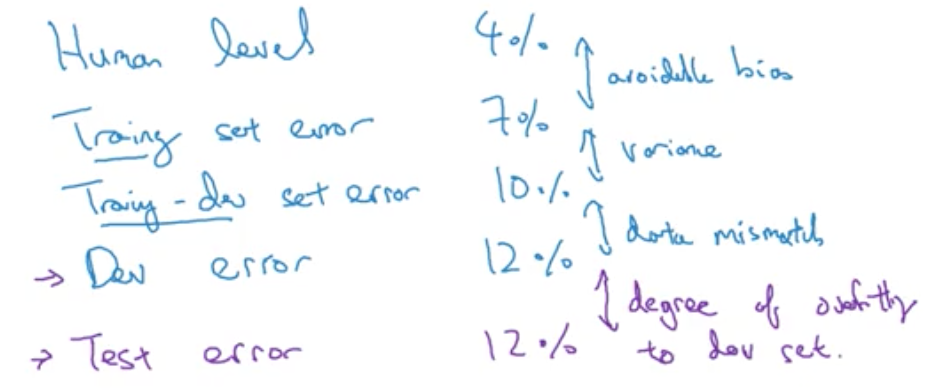 Human level 4%
avoidable bias
Training set error 7%
variance
Training-dev set error 10%
data mismatch
→ Dev error 12%
degree of overfitting
→ Test error 12% to dev set.